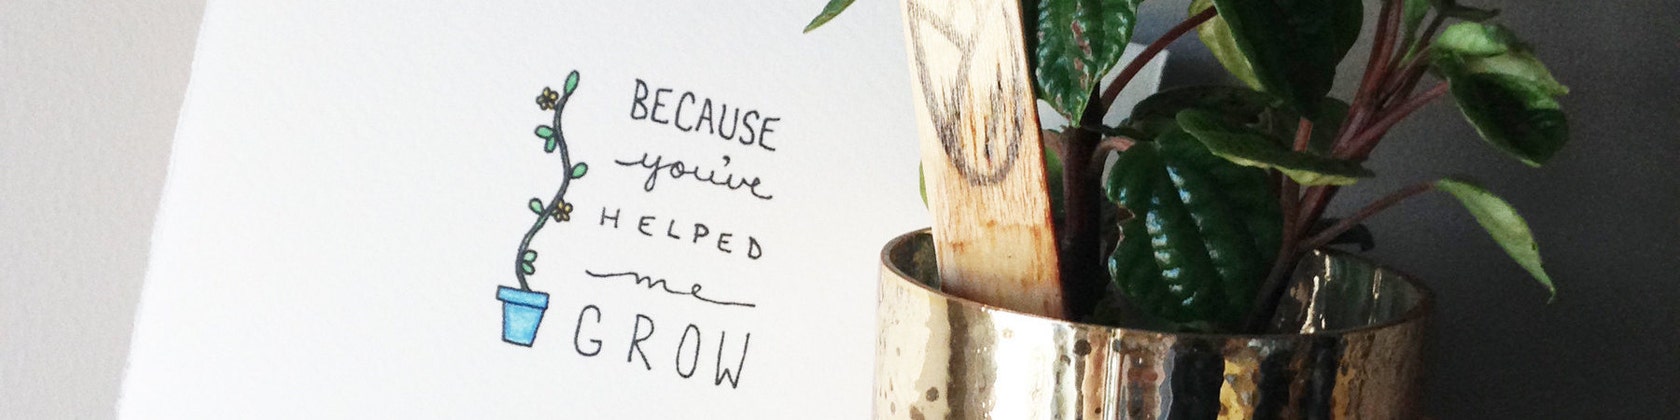 BECAUSE
you've
HELPED
me
GROW